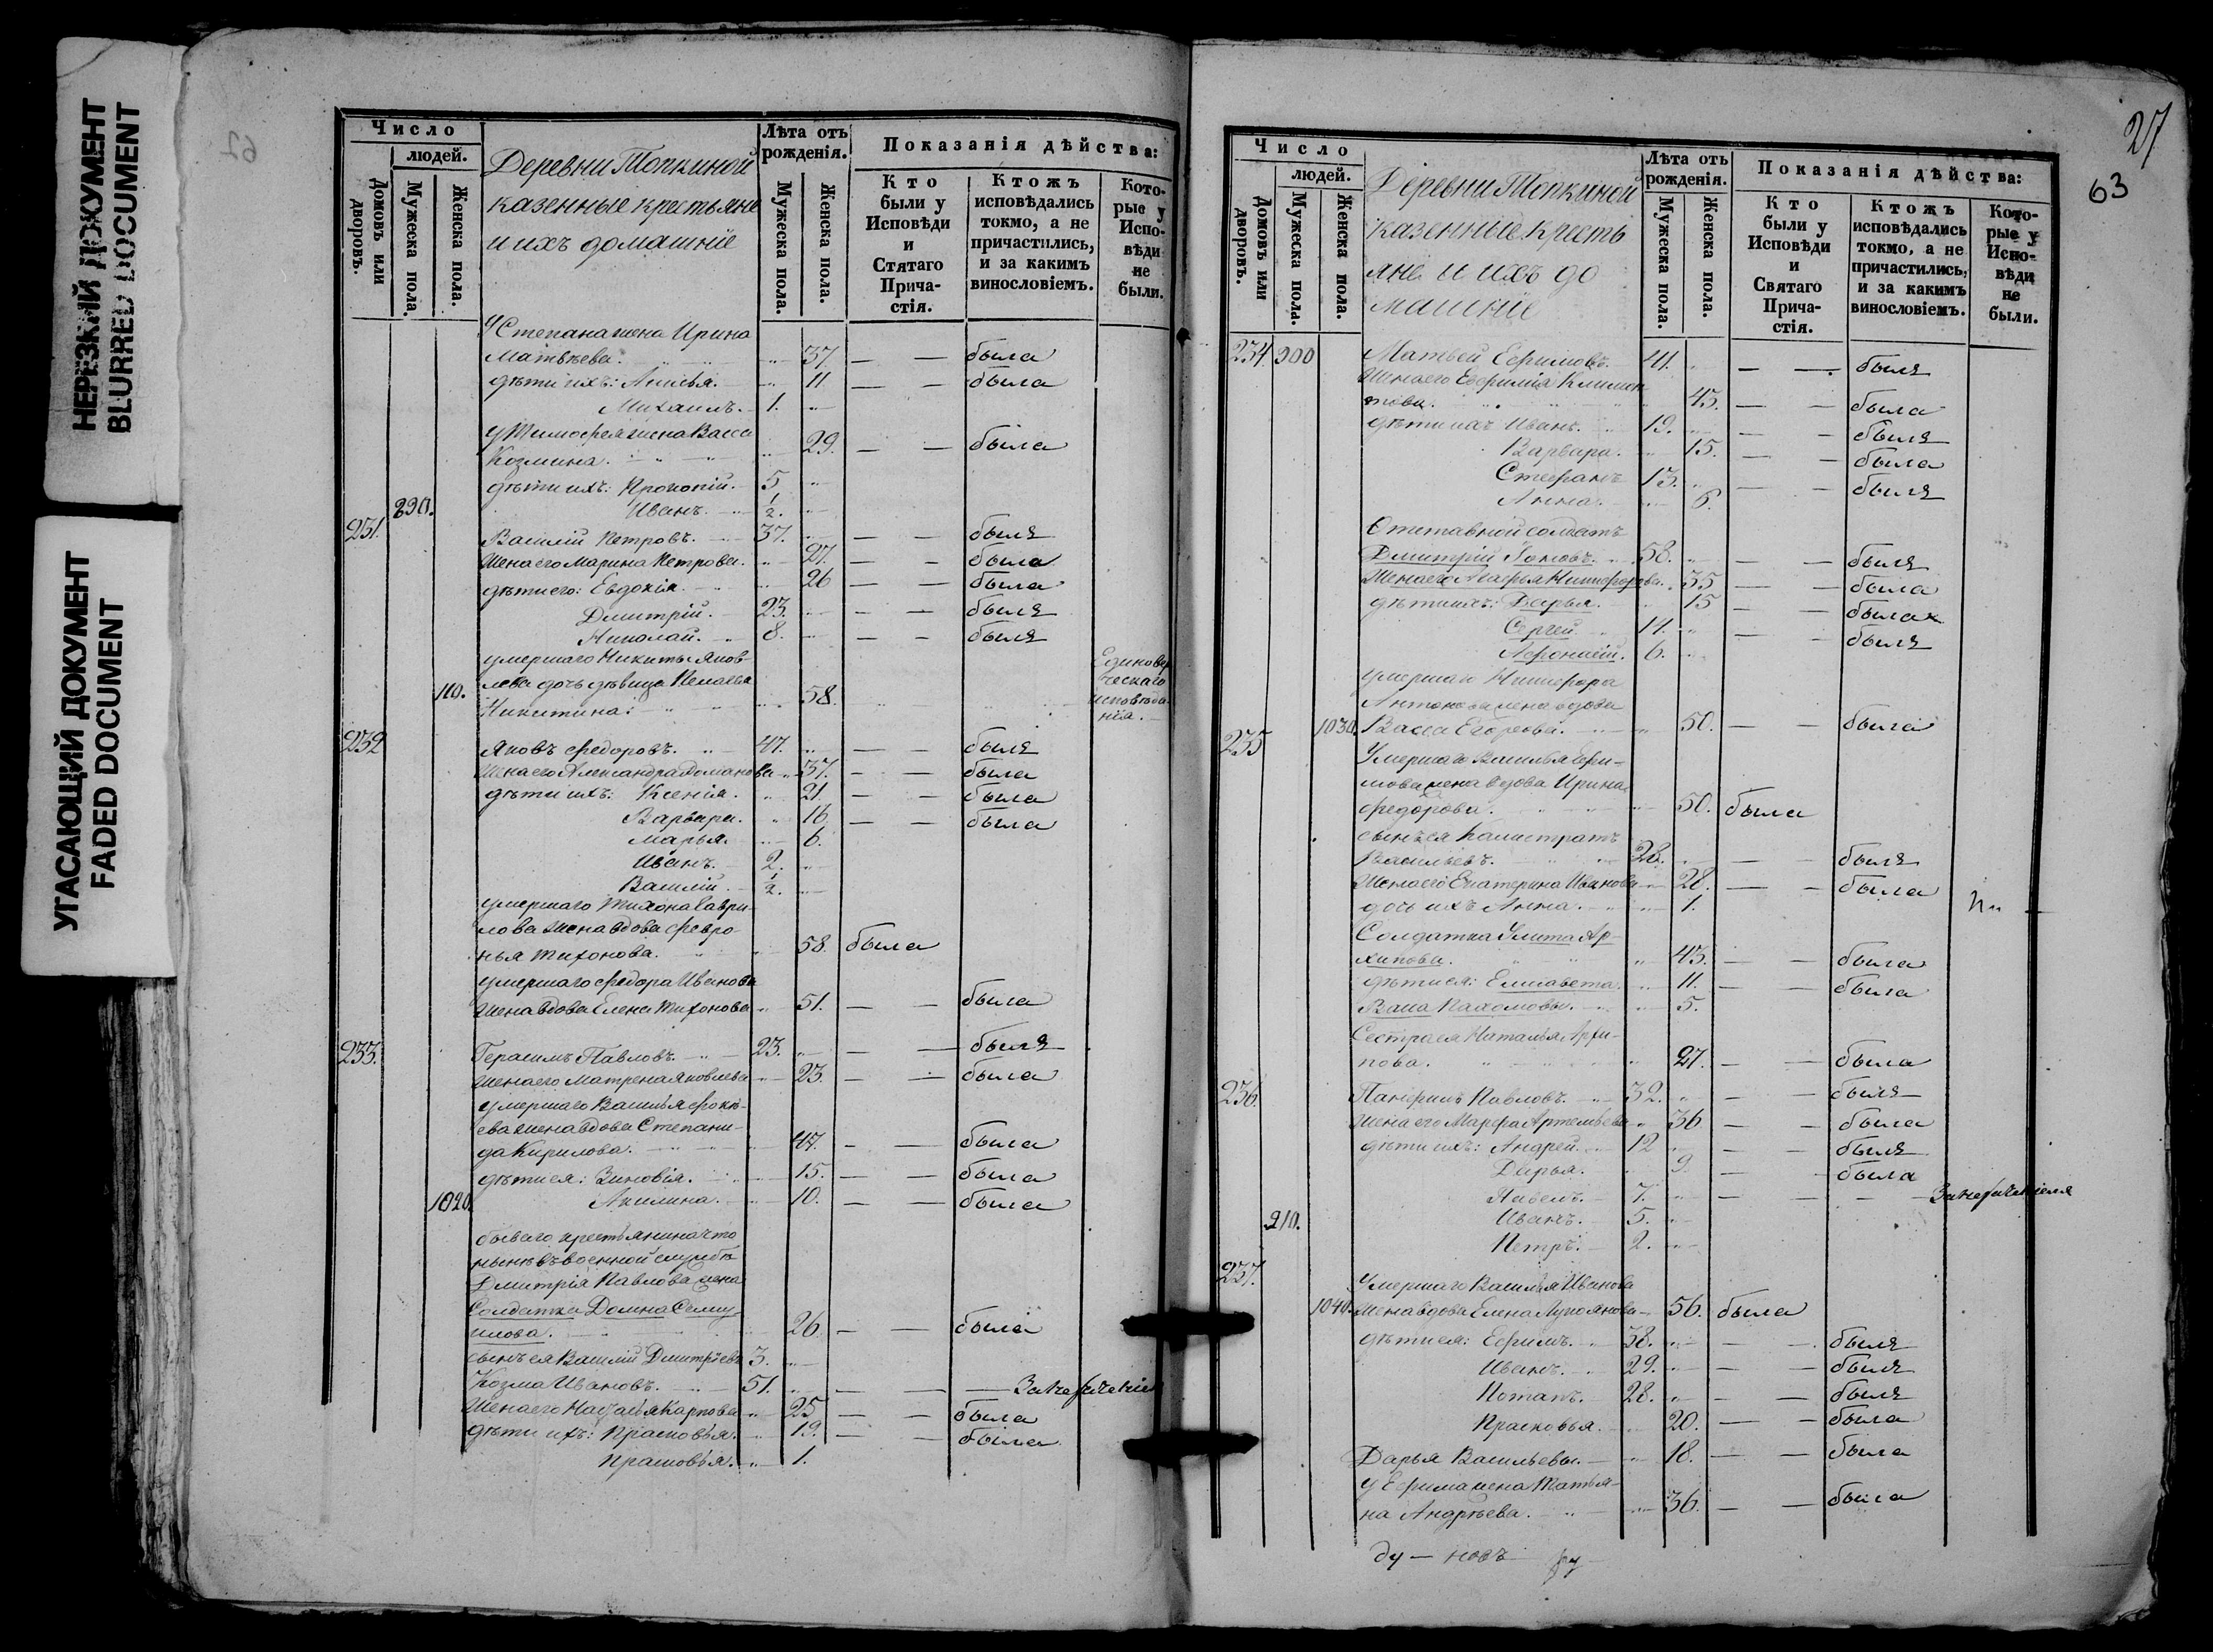 НЕРЕЗКИЙ ДОКУМЕНТ
BLURRED DOCUMENT
УГАСАЮЩИЙ ДОКУМЕНТ
FADED DOCUMENT
Число
людей.
Домовъ или дворовъ.
Мужеска пола.
Женска пола.
Деревни Топкиной
казенные крестьяне
и ихъ домашнiе
Лѣта отъ рожденiя.
Мужеска пола.
Женска пола.
Показанiя дѣйства:
Кто были у Исповѣди и Стятаго Причастiя.
Ктожъ исповѣдались токмо, а не причастились, и за какимъ винословiемъ.
Которые у Исповѣди не были.
У Степана жена Ирина
Матвѣева. 37. — — была
дѣти ихъ: 11 — — была
Михаилъ. 1.
У Тимофея жена Васса
Козмина. 29. — — была
дѣти ихъ: Прокопiй. 5
290. Иванъ. 1/2.
231. Василiй Петровъ. 37. — — былъ
Жена его Марина Петрова. 27. — — была
дѣти его: Евдокiя. 26 — — была
Дмитрiй. 23. — — былъ
Николай. 8. — — былъ
умершаго Никиты Яков-
лева дочь дѣвица Пелагея
Никитина. 58.
232 Яковъ Федоровъ. 47. — — былъ
Жена его Александра Доманова 37. — — была
дѣти ихъ: Ксенiя. 21. — — была
Варвара. 16. — — была
Марья. 6.
Иванъ. 2.
Василiй. 1/2.
умершаго Тихона Гаври-
лова жена вдова Февро-
нья Тихонова. 58. была
умершаго Федора Иванова
Жена вдова Елена Тихонова 51. — — была
233. Герасимъ Павловъ. 23. — — былъ
Жена его Матрена Яковлева 23. — — была
умершаго Василья Фокѣ-
ева жена вдова Степани-
да Кирилова. 47. — — была
дѣти ея: Зиновiя. 15. — — была
1020. Акилина. 10. — — была
бывшаго крестьянина что
нынѣ въ военной службѣ
Дмитрiя Павлова жена
Солдатка Домна
26. — — была
сынъ ея Василiй Дмитрiевъ 3.
Козма Ивановъ. 51. — —
Жена его Наталья Карпова 25 — — была
дѣти ихъ: Прасковья. 19. — — была
Прасковья. 1.
27
63
Число
людей.
Домовъ или дворовъ.
Мужеска пола.
Женска пола.
Деревни Топкиной
казенные кресть
яне и ихъ до
машнiе
Лѣта отъ рожденiя.
Мужеска пола.
Женска пола.
Показанiя дѣйства:
Кто были у Исповѣди и Святаго Причастiя.
Ктожъ исповѣдались токмо, а не причастились, и за какимъ винословiемъ.
Которые у Исповѣди не были.
234. 300 Матвей Ефимовъ. 41. — — былъ
Жена его Ефимiя Климен
това. 45. — — была
дѣти ихъ Иванъ. 19. — — былъ
Варвара. 15. — — была
Стефанъ 13. — — былъ
Анна. 6.
Отставной солдатъ
Дмитрiй 58. — — былъ
Жена его Агафья Никифорова. 35 — — была
дѣти ихъ: Дарья. 15 — — была
Сергей 14. — — былъ
Афонасiй. 6.
умершаго Никифора
Антонова жена вдова
1030. Васса Егорова. 50. — — была
235 Умершаго Василья Ефи-
мова жена вдова Ирина
Федорова. 50. была
сынъ ея Калистратъ
Васильевъ. 28. — — былъ
Жена его Екатерина Иванова 28. — — была
дочь ихъ Анна. 1.
Солдатка Улита Ар-
хипова. 43. — — была
дѣти ея: Елисавета. 11. — — была
Васса Пахомовы. 5.
Сестра ея Наталья Архи-
пова. 27. — — была
236. Панфилъ Павловъ. 32. — — былъ
Жена его Марфа Артемьева 36 — — была
дѣти ихъ: Андрей. 12 — — былъ
Дарья. 9. — — была
Павелъ. 7. — —
310. Иванъ. 5.
Петръ. 2.
237. Умершаго Василья Иванова
1040. Жена вдова Елена Лукоянова 56. была
дѣти ея: Ефимъ. 38. — — былъ
Иванъ. 29. — — былъ
Потапъ. 28. — — былъ
Прасковья. 20. — — была
Дарья Васильевы. 18. — — была
У Ефима жена Татья-
на Андрѣева. 36. — — была
ду — новъ